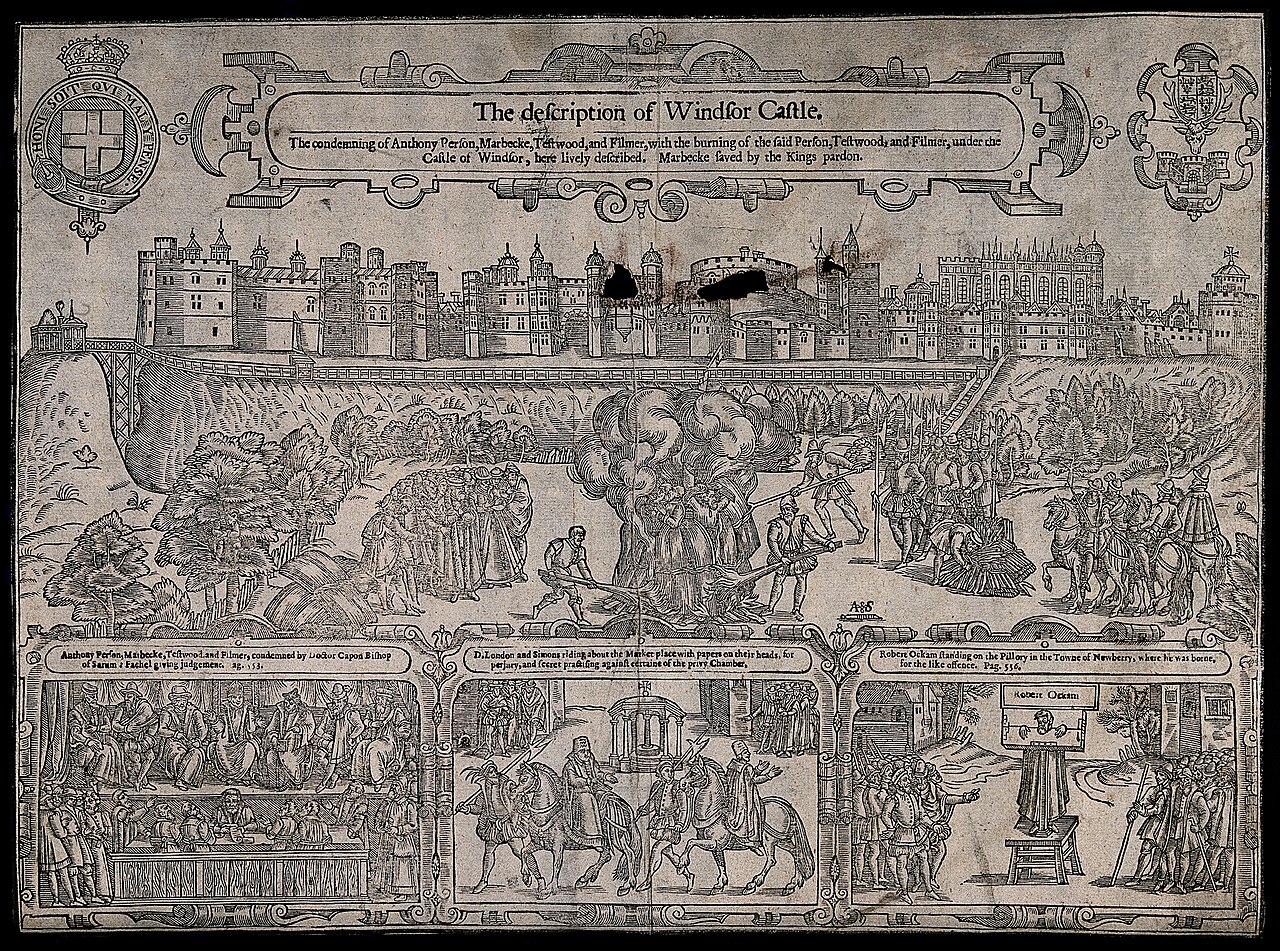 HONI SOIT QVI MAL Y PENSE.
The deſcription of Windſor Caſtle.
The condemning of Anthony Perſon, Marbecke, Teſtwood, and Filmer, with the burning of the ſaid Perſon, Teſtwood, and Filmer, under the
Caſtle of Windſor, here lively deſcribed. Marbecke ſaved by the Kings pardon.
Anthony Perſon, Marbecke, Teſtwood, and Filmer, condemned by Doctor Capon Biſhop
of Sarum: Fachel giving judgement. ag. 553.
D. London and Simons riding about the Market place with papers on their heads, for
perjury, and ſecret practiſing againſt certaine of the privy Chamber.
Robert Ockam ſtanding on the Pillory in the Towne of Newberry, where he was borne,
for the like offence. Pag. 556.
Robert Ockam